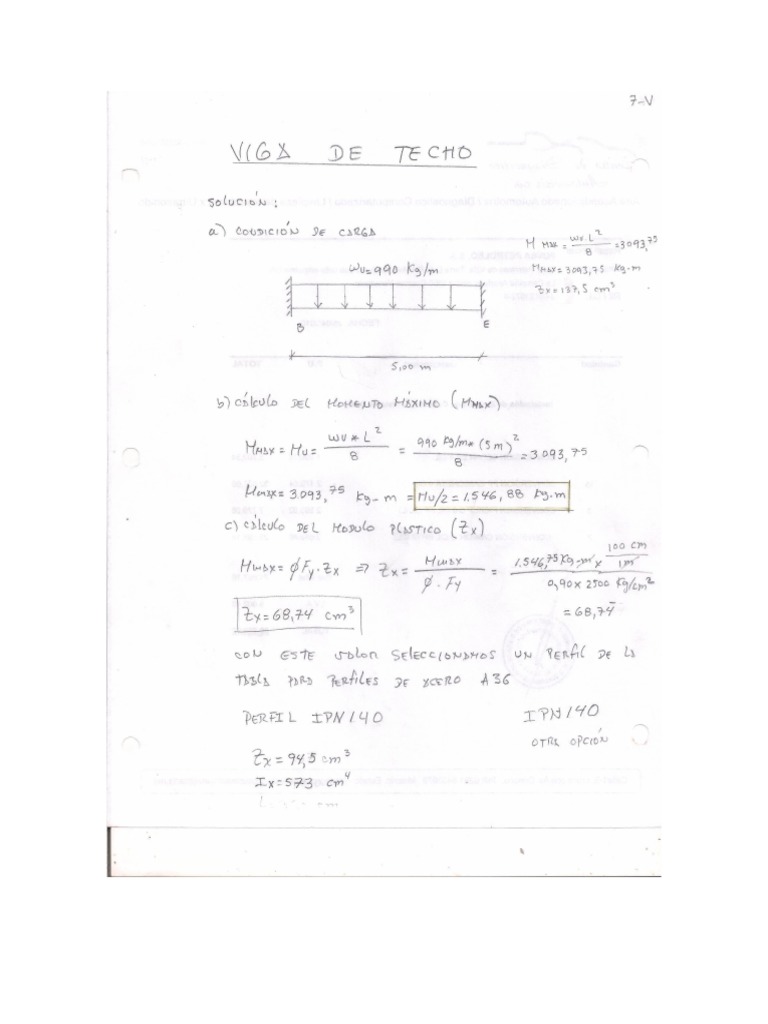 7-V
VIGA DE TECHO
SOLUCIÓN:
a) CONDICIÓN DE CARGA
M MAX = WU.L² / 8 = 3093,75
MMAX = 3093,75 Kg-m
Zx = 137,5 cm³
WU=990 Kg/m
B E
5,00 m
b) CÁLCULO DEL MOMENTO MÁXIMO (MMAX)
MMAX = MU = WU * L² / 8 = 990 Kg/m * (5 m)² / 8 = 3.093,75
MMAX = 3.093,75 Kg-m = MU/2 = 1.546,88 Kg.m
c) CÁLCULO DEL MODULO PLASTICO (Zx)
MMAX = ϕFy.Zx ⇒ Zx = MMAX / ϕ.Fy = 1.546,75 Kg-m x 100 cm / 1m / 0,90 x 2500 Kg/cm²
Zx = 68,74 cm³ = 68,74
CON ESTE VALOR SELECCIONAMOS UN PERFIL DE LA
TABLA PARA PERFILES DE ACERO A36
PERFIL IPN 140 IPN 140
OTRA OPCIÓN
Zx = 94,5 cm³
Ix = 573 cm⁴